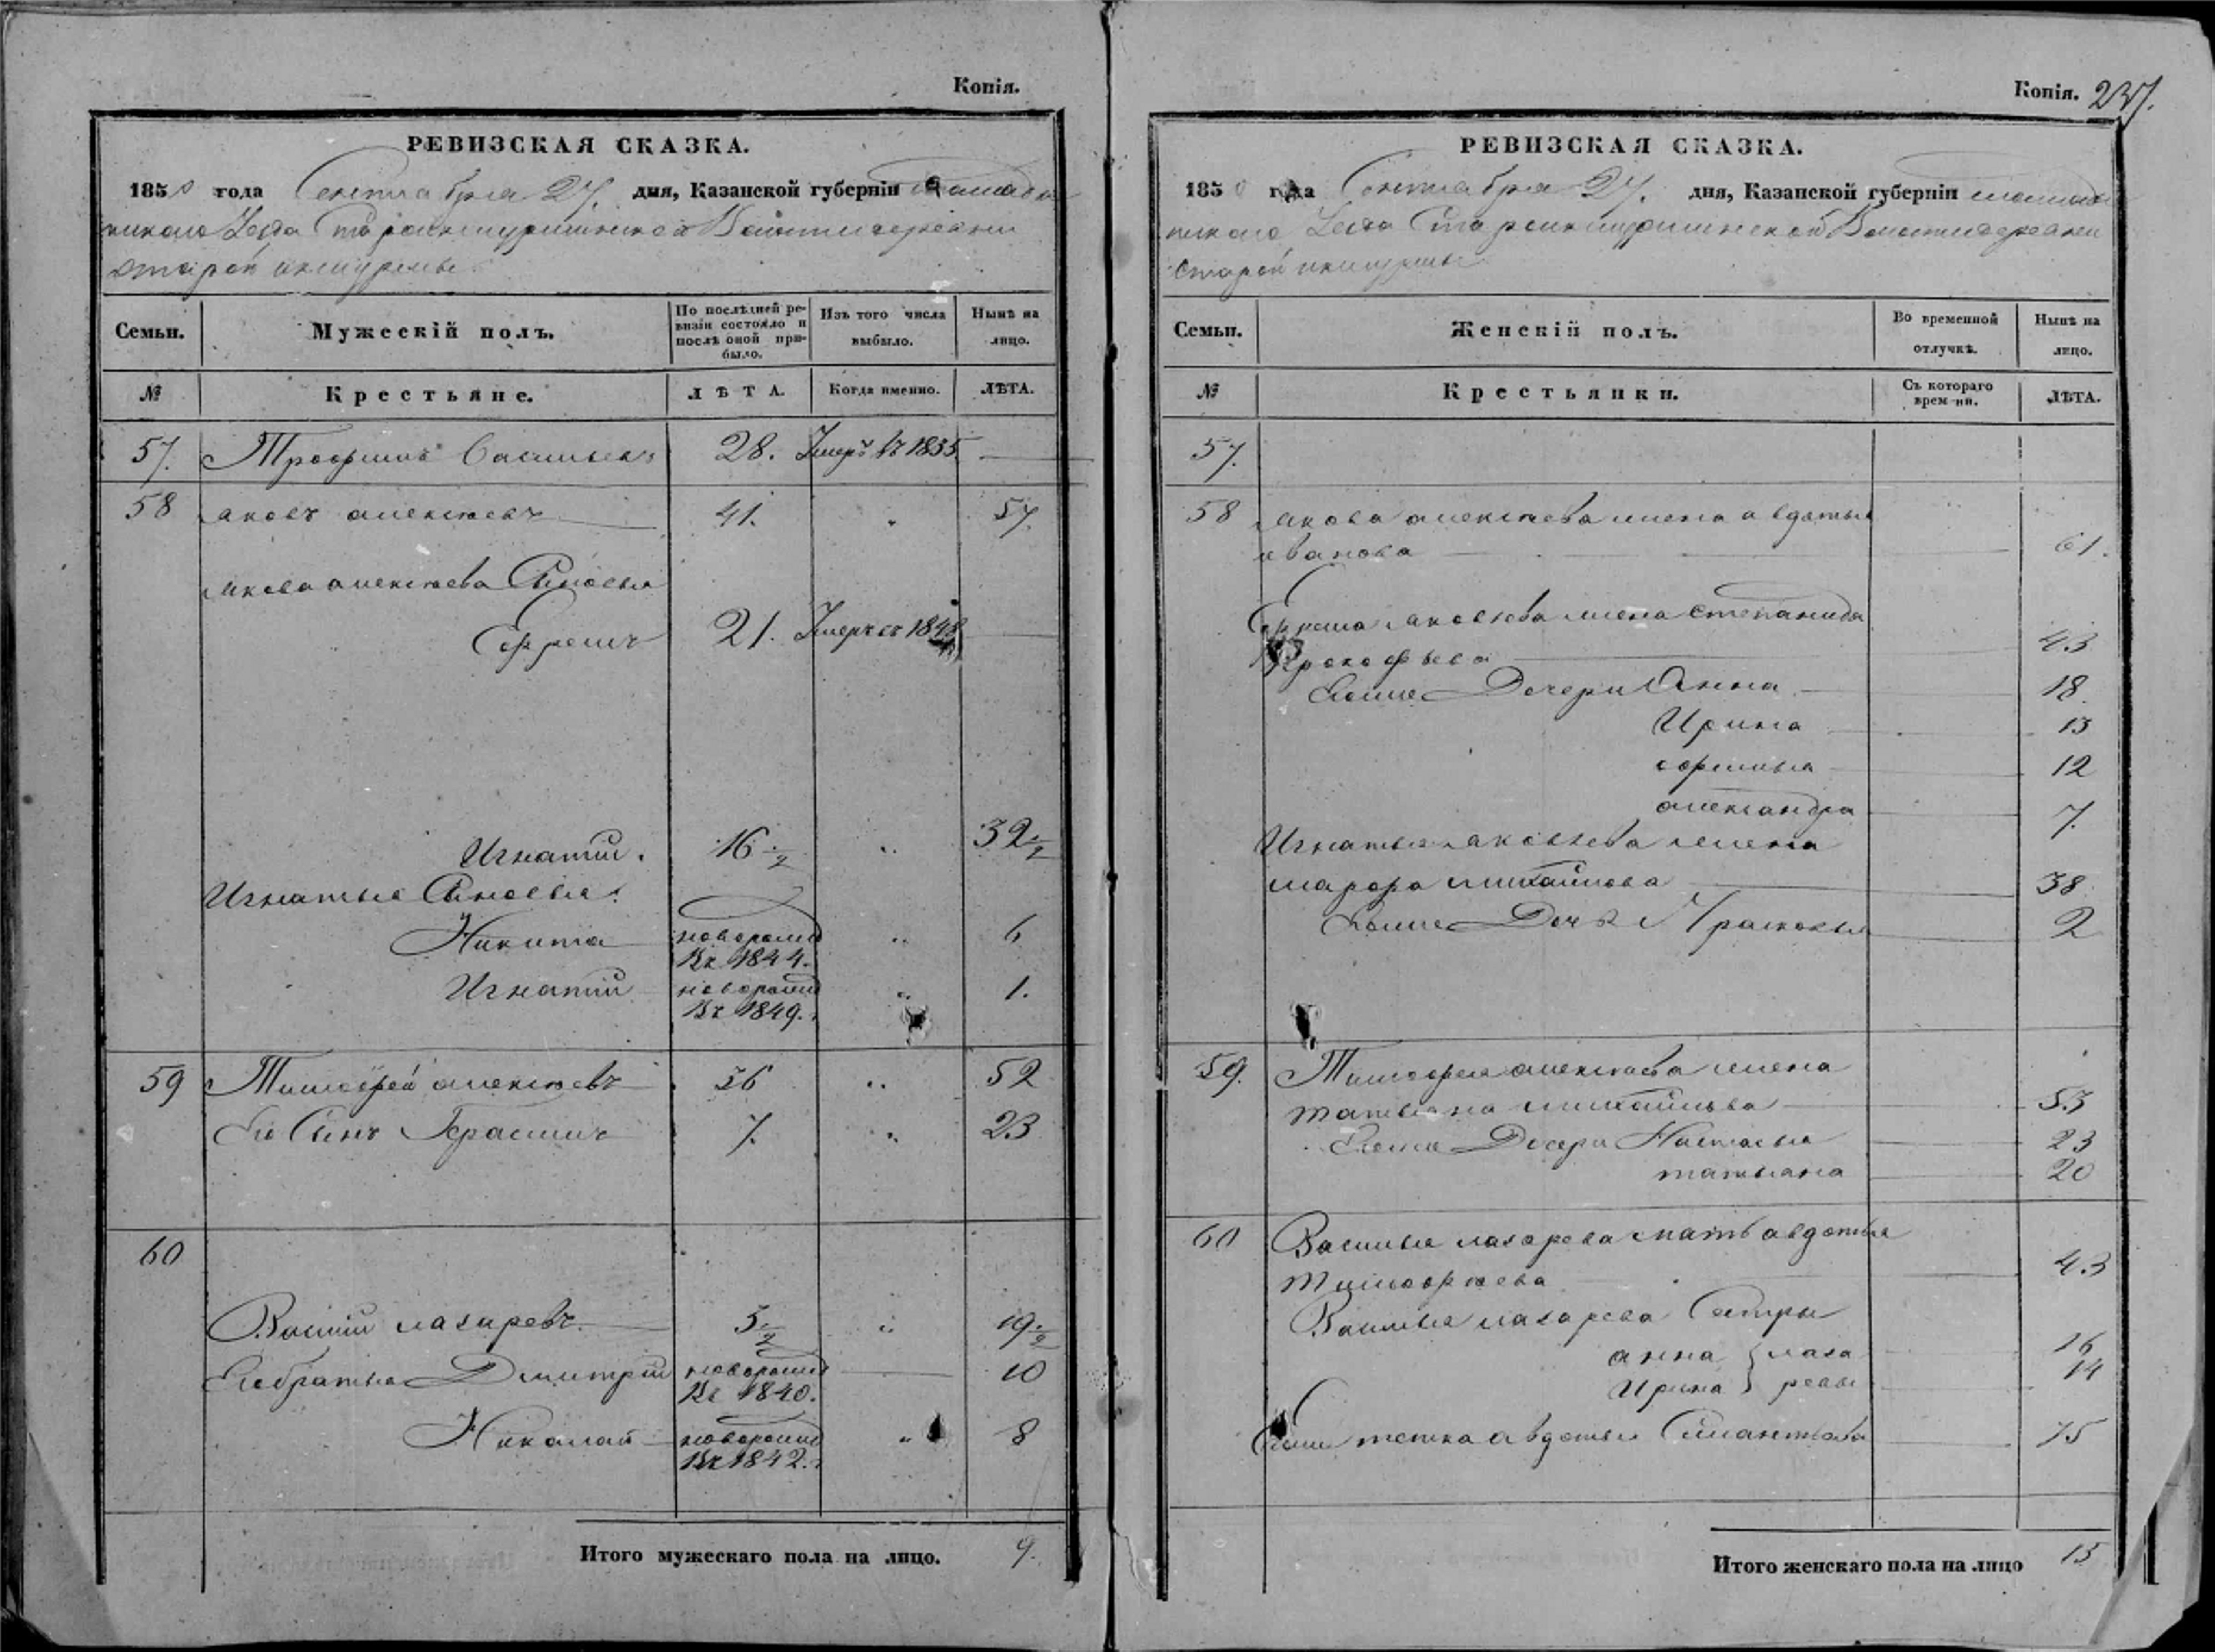 Копія.
РЕВИЗСКАЯ СКАЗКА.
1850 года Сентября 27. дня, Казанской губерніи
Уезда Волости деревни
Старой
Семьи. Мужескій полъ. По послѣдней ревизіи состояло и послѣ оной прибыло. Изъ того числа выбыло. Нынѣ на лицо.
№ Крестьяне. ЛѢТА. Когда именно. ЛѢТА.
57. Трофимъ Васильевъ 28. Умеръ въ 1835. —
58 Яковъ алексѣевъ 41. „ 57.
Якова алексѣева Сыновья
Ефремъ 21. Умеръ въ —
Игнатій. 16 1/2 „ 32 1/2
Игнатья Сыновья.
Никита новорожд „ 6
Въ 1844.
Игнатій новорожд „ 1.
Въ 1849.
59 Тимофей алексѣевъ 36 „ 52
Его Сынъ Герасимъ 7. „ 23
60
Василій лазаревъ. 3 1/2 „ 19 1/2
Его братья Дмитрій новорожд — 10
Въ 1840.
Николай новорожд „ 8
Въ 1842.
Итого мужескаго пола на лицо. 9.
Копія. 237.
РЕВИЗСКАЯ СКАЗКА.
1850 года Сентября 27. дня, Казанской губерніи
Уезда Волости деревни
Старой
Семьи. Женскій полъ. Во временной отлучкѣ. Нынѣ на лицо.
№ Крестьянки. Съ котораго времени. ЛѢТА.
57.
58 Якова алексѣева жена авдотья
иванова 61.
Ефрема яковлева жена степанида
Прокофьева 43
Ево же Дочери Анна 18.
Ирина 13
софья 12
александра 7.
Игнатья яковлева жена
марфа михайлова 38
Ево же Дочь Прасковья 2
59. Тимофея алексѣева жена
татьяна михайлова 53
Ево же Дочери Настасья 23
татьяна 20
60 Василья лазарева мать авдотья
тимофѣева 43
Василья лазарева Сестры
анна } лаза 16
Ирина } ревы 14
тетка авдотья 75
Итого женскаго пола на лицо 15